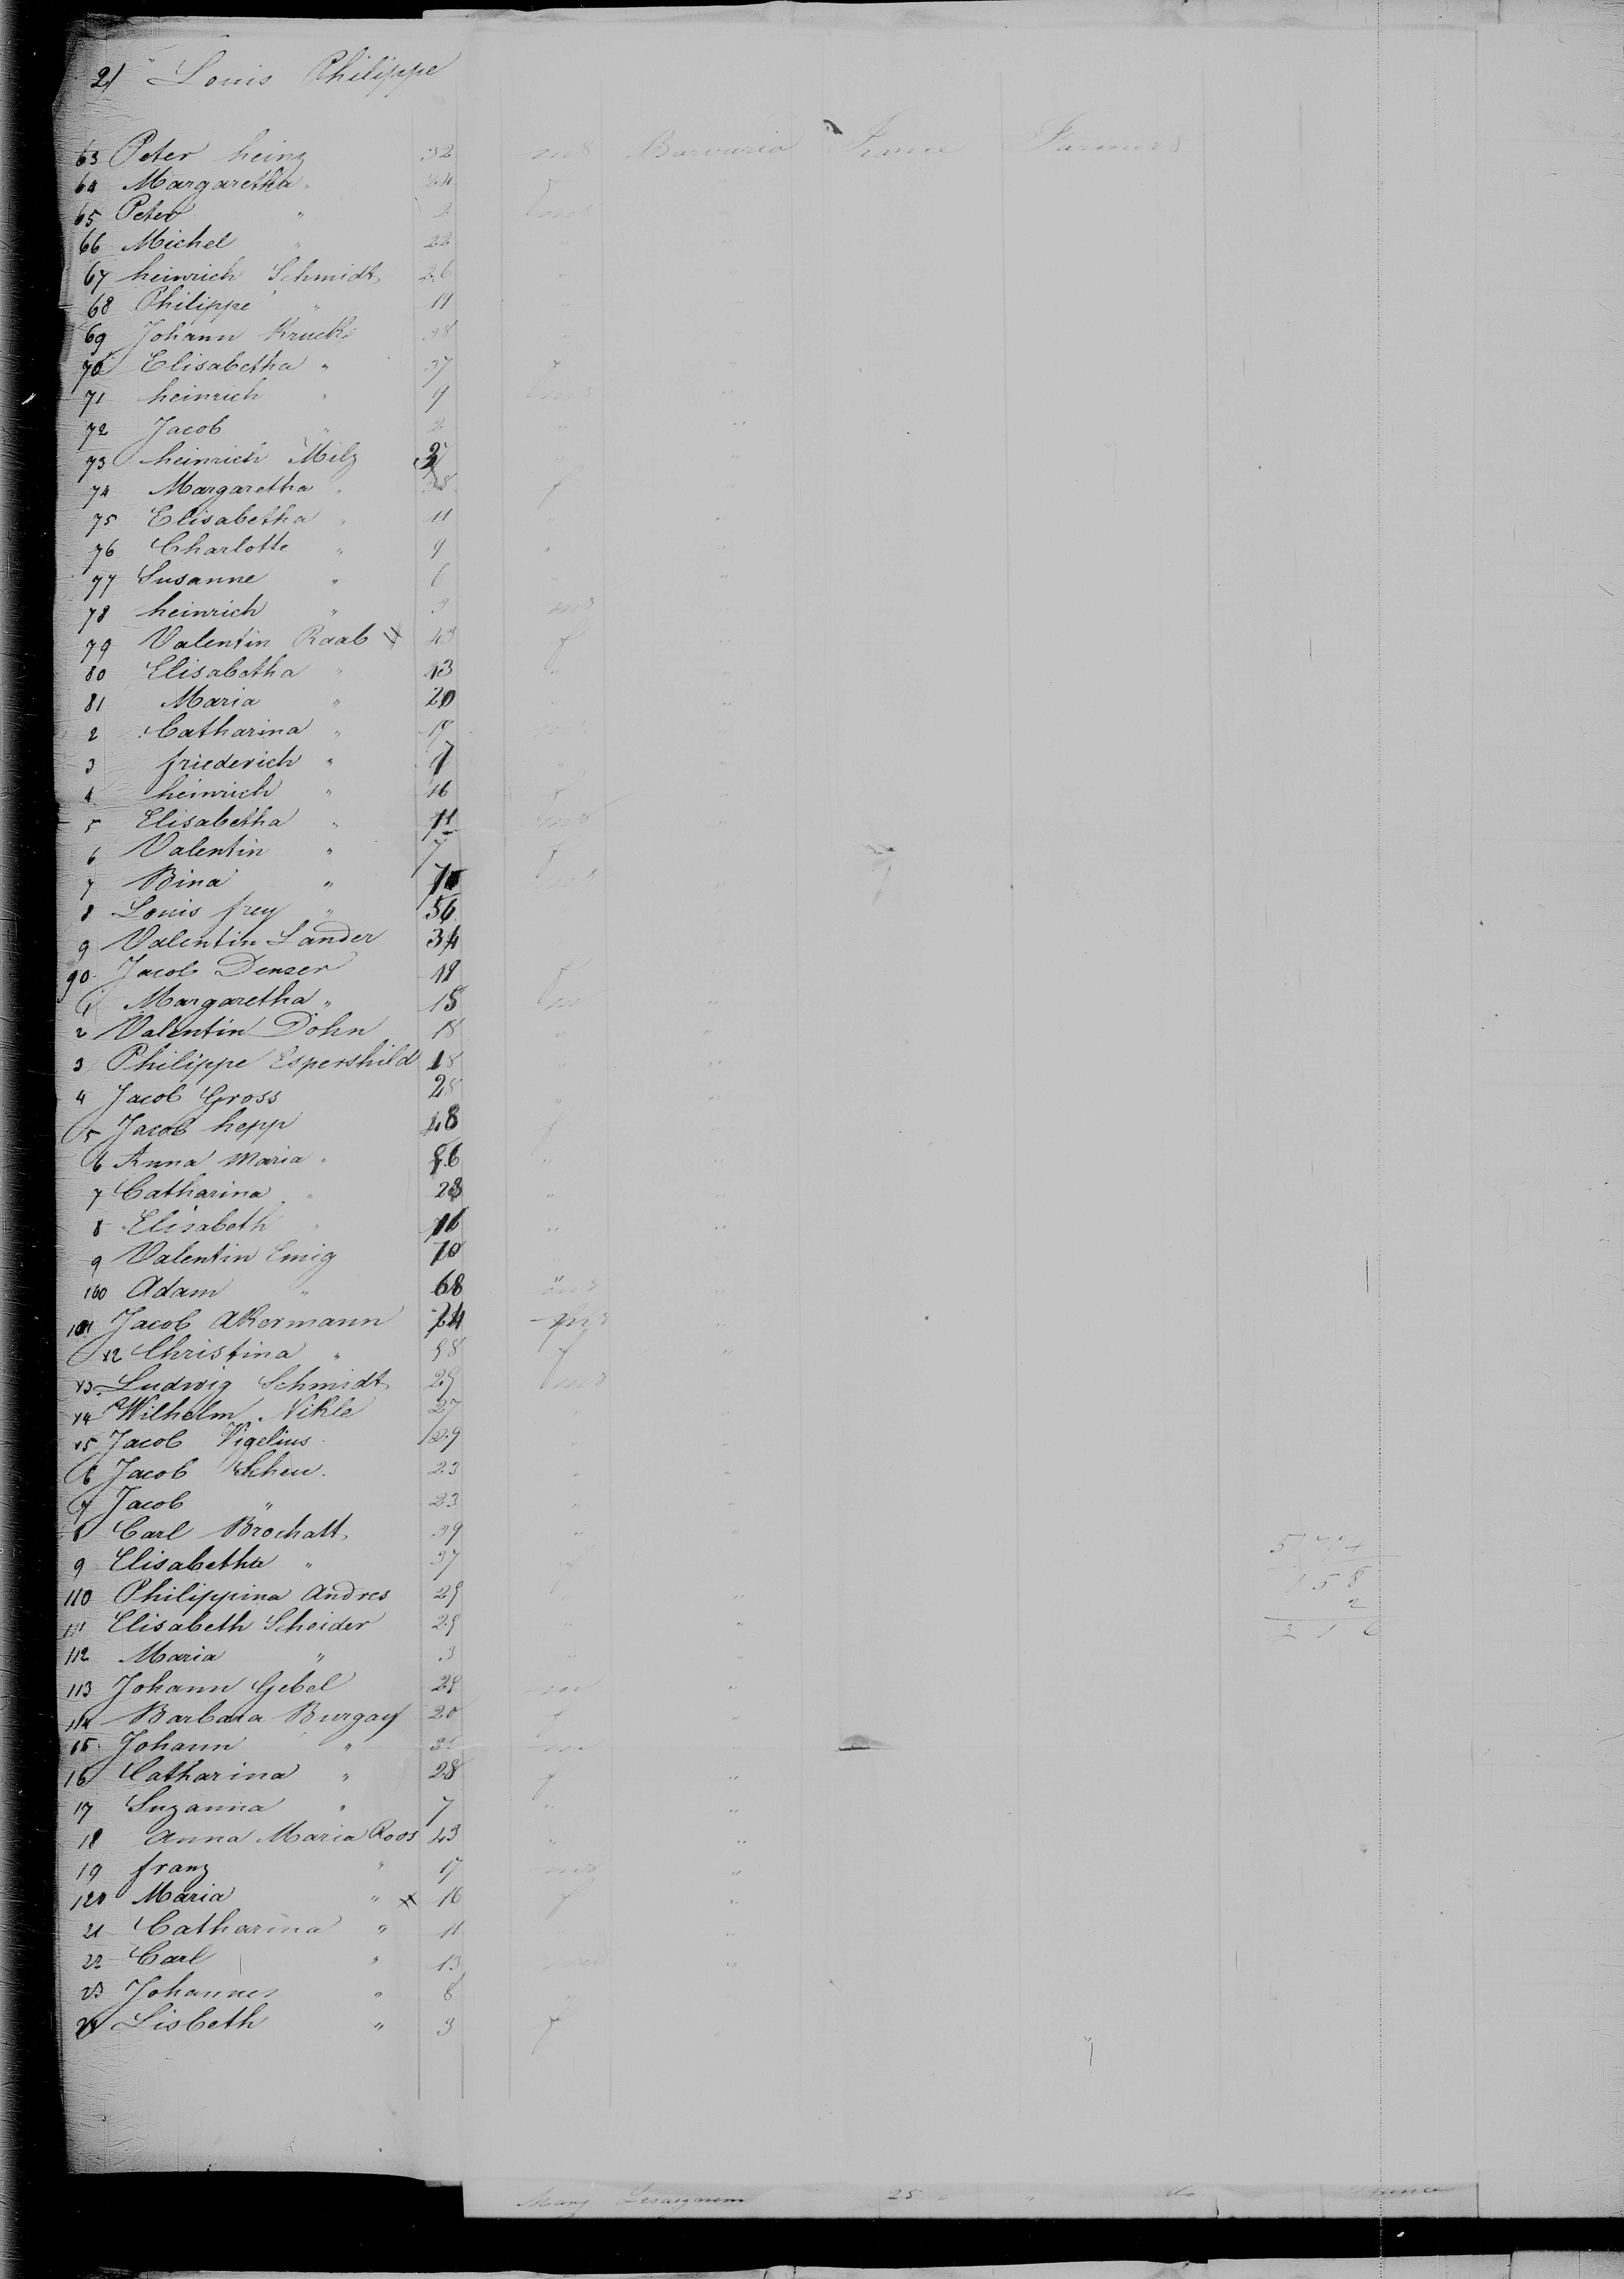 2) Louis Philippe
63 Peter heinz 32 ms Barvaria France Farmers
64 Margaretha " 24 f "
65 Peter " ms
66 Michel " 22 "
67 heinrich Schmidt 26 "
68 Philippe " 11 "
69 Johann Kruck 38
70 Elisabetha " 37 f "
71 heinrich " 9 ms "
72 Jacob " 2 " "
73 heinrich Milz " "
74 Margaretha " 38 f
75 Elisabetha " 11 " "
76 Charlotte " 9 " "
77 Susanne " 6 " "
78 heinrich " 3 ms
79 Valentin Raab 43 f "
80 Elisabetha " 43 "
81 Maria " 20 "
2 Catharina " 19
3 friederich "
4 heinrich " 16 f
5 Elisabetha " 11 ms
6 Valentin " 7 f
7 Bina " ms
8 Louis frey " 56
9 Valentin Lander 34
90 Jacob Denzer 48 f
1 Margaretha " 15 m "
2 Valentin Dohn 18 " "
3 Philippe Espershild 18 " "
4 Jacob Gross 28 " "
5 Jacob hepp 48 f
6 Anna Maria " "
7 Catharina " 28 "
8 Elisabeth " 16 " "
9 Valentin Emig 10
100 Adam " 68 ms
101 Jacob Akermann 24 ms "
x2 Christina " 58 f "
x3 Ludwig Schmidt 29 ms
x4 Wilhelm Nikle 27
x5 Jacob Vigelius 29
6 Jacob Scheu. 23 " "
7 Jacob " 23 " "
8 Carl Brochatt 39 " "
9 Elisabetha " 37 f
110 Philippina Andres 29 "
111 Elisabeth Scheider 29 " "
158
2
112 Maria " 3 "
316
113 Johann Gebel 28 m "
114 Barbara Burgay 20 f
15 Johann " m
16 Catharina " 28 f "
17 Suzanna " 7 " "
18 Anna Maria Roos 43 " "
19 franz " 17 ms "
120 Maria " x 16 f "
21 Catharina " 11 "
22 Carl " 13 ms "
23 Johannes " 8 "
24 Lisbeth " 3 f
25 " " do France